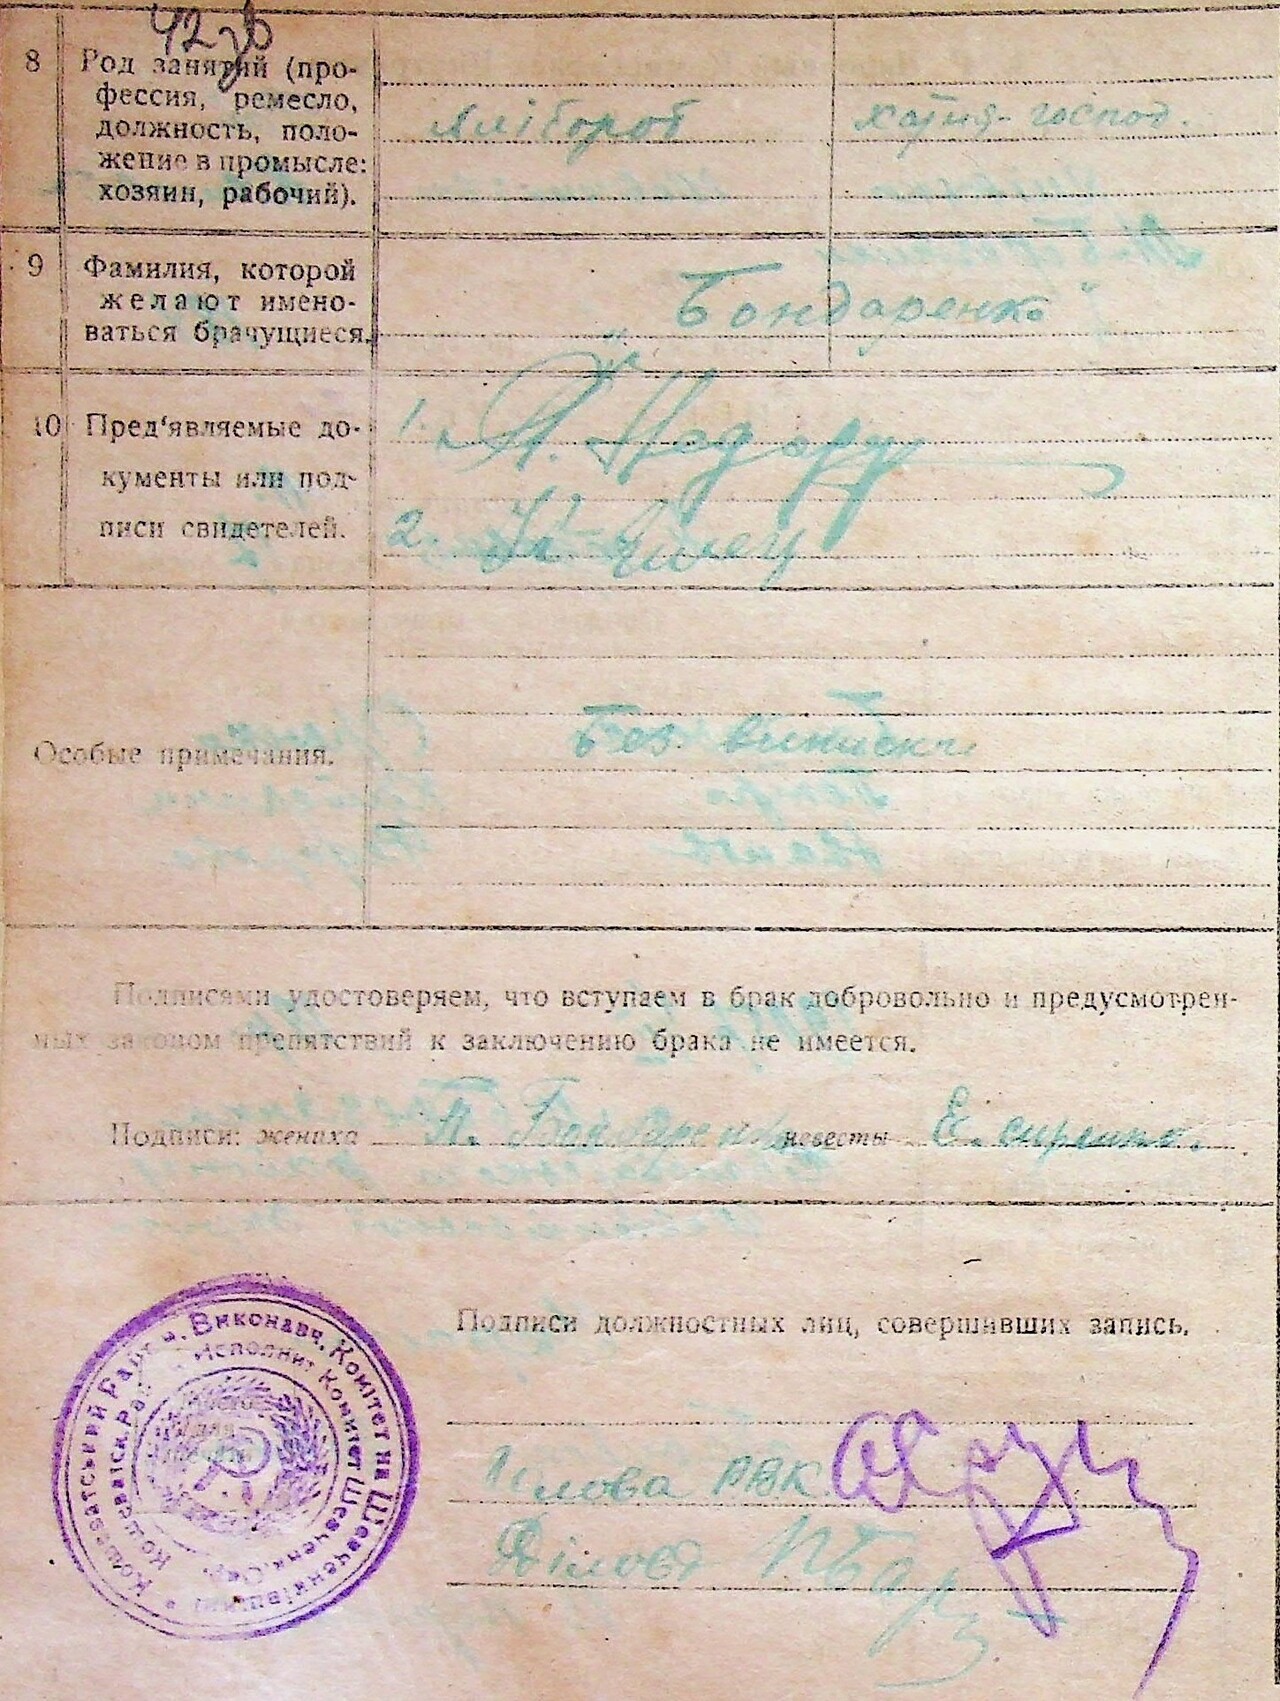 42зв
8 Род занятий (про-
фессия, ремесло,
должность, поло-
жение в промысле:
хозяин, рабочий).
хлібороб хатня-господ.
9 Фамилия, которой
желают имено-
ваться брачущиеся.
Бондаренко
10 Пред'являемые до-
кументы или под-
писи свидетелей.
1.
2.
Особые примечания.
Без виписки
Подписями удостоверяем, что вступаем в брак добровольно и предусмотрен-
ных законом препятствий к заключению брака не имеется.
Подписи: жениха П. Бондаренко невесты Е. сиренко.
Подписи должностных лиц, совершивших запись.
Голова РВК
Діловод
Виконавч. Комітет на Шевченківщині
Исполнит Комитет Шевченк.